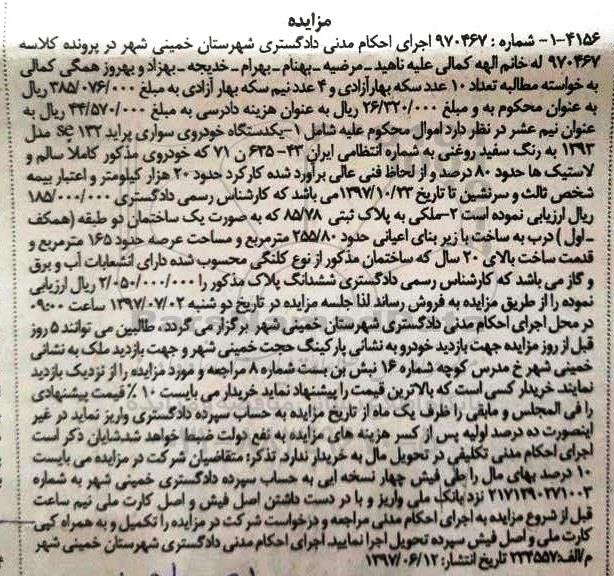 مزایده
۱-۴۱۵۶- شماره : ۹۷۰۴۶۷ اجرای احکام مدنی دادگستری شهرستان خمینی شهر در پرونده کلاسه
۹۷۰۴۶۷ له خانم الهه کمالی علیه ناهید ـ مرضیه ـ بهنام ـ بهرام ـ خدیجه ـ بهزاد و بهروز همگی کمالی
به خواسته مطالبه تعداد ۱۰ عدد سکه بهارآزادی و ۴ عدد نیم سکه بهار آزادی به مبلغ ۳۸۵/۰۷۶/۰۰۰ ریال
به عنوان محکوم به و مبلغ ۲۶/۳۲۰/۰۰۰ ریال به عنوان هزینه دادرسی به مبلغ ۴۴/۵۷۰/۰۰۰ ریال به
عنوان نیم عشر در نظر دارد اموال محکوم علیه شامل ۱-یکدستگاه خودروی سواری پراید ۱۳۲ se مدل
۱۳۹۳ به رنگ سفید روغنی به شماره انتظامی ایران ۴۳- ۶۳۵ ن ۷۱ که خودروی مذکور کاملاً سالم و
لاستیک ها حدود ۸۰ درصد و از لحاظ فنی عالی برآورد شده کارکرد حدود ۲۰ هزار کیلومتر و اعتبار بیمه
شخص ثالث و سرنشین تا تاریخ ۱۳۹۷/۱۰/۲۳ می باشد که کارشناس رسمی دادگستری ۱۸۵/۰۰۰/۰۰۰
ریال ارزیابی نموده است ۲-ملکی به پلاک ثبتی ۸۵/۷۸ که به صورت یک ساختمان دو طبقه (همکف
ـ اول ) درب به ساخت با زیر بنای اعیانی حدود ۲۵۵/۸۰ مترمربع و مساحت عرصه حدود ۱۶۵ مترمربع و
قدمت ساخت بالای ۲۰ سال که ساختمان مذکور از نوع کلنگی محسوب شده دارای انشعابات آب و برق
و گاز می باشد که کارشناس رسمی دادگستری ششدانگ پلاک مذکور را ۲/۰۵۰/۰۰۰/۰۰۰ ریال ارزیابی
نموده را از طریق مزایده به فروش رساند لذا جلسه مزایده در تاریخ دو شنبه ۱۳۹۷/۰۷/۰۲ ساعت ۰۹:۰۰
در محل اجرای احکام مدنی دادگستری شهرستان خمینی شهر برگزار می گردد. طالبین می توانند ۵ روز
قبل از روز مزایده جهت بازدید خودرو به نشانی پارکینگ حجت خمینی شهر و جهت بازدید ملک به نشانی
خمینی شهر خ مدرس کوچه شماره ۱۶ نبش بن بست شماره ۸ مراجعه و مورد مزایده را از نزدیک بازدید
نمایند. خریدار کسی است که بالاترین قیمت را پیشنهاد نماید خریدار می بایست ۱۰ ٪ قیمت پیشنهادی
را فی المجلس و مابقی را ظرف یک ماه از تاریخ مزایده به حساب سپرده دادگستری واریز نماید در غیر
اینصورت ده درصد اولیه پس از کسر هزینه های مزایده به نفع دولت ضبط خواهد شد.شایان ذکر است
اجرای احکام مدنی تکلیفی در تحویل مال به خریدار ندارد. تذکر: متقاضیان شرکت در مزایده می بایست
۱۰ درصد بهای مال را طی فیش چهار نسخه ایی به حساب سپرده دادگستری خمینی شهر به شماره
۲۱۷۱۲۹۰۲۷۱۰۰۳ نزد بانک ملی واریز و با در دست داشتن اصل فیش و اصل کارت ملی نیم ساعت
قبل از شروع مزایده به اجرای احکام مدنی مراجعه و درخواست شرکت در مزایده را تکمیل و به همراه کپی
کارت ملی و اصل فیش سپرده تحویل اجرا نمایید. اجرای احکام مدنی دادگستری شهرستان خمینی شهر
م/الف:۲۳۴۵۵۷ تاریخ انتشار: ۱۳۹۷/۰۶/۱۲